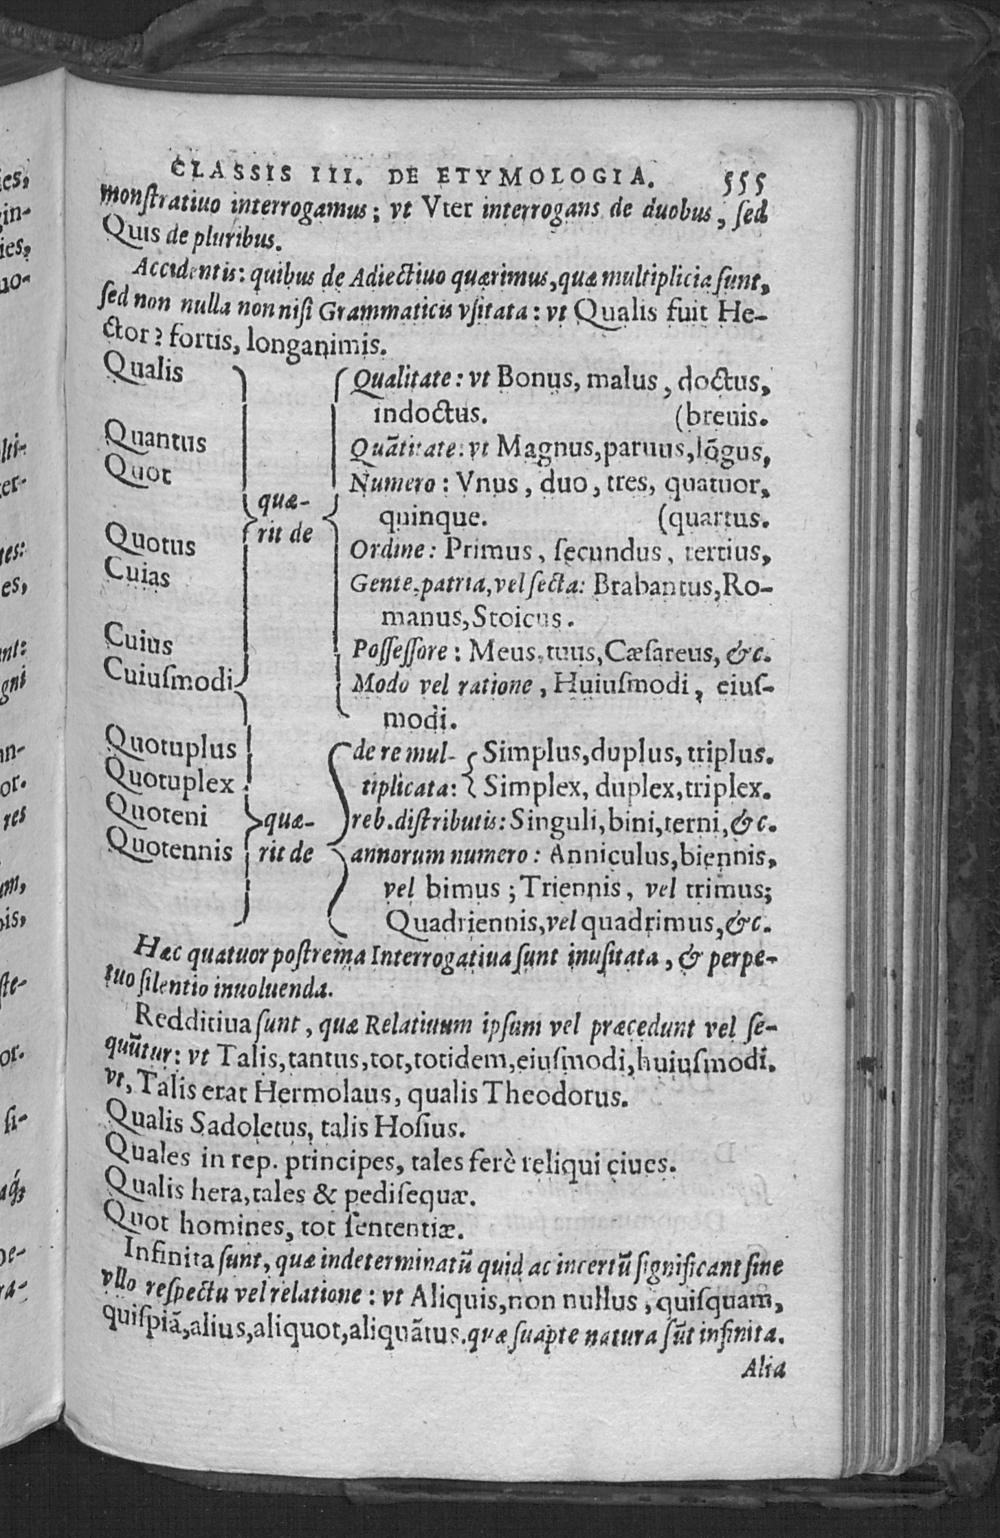 CLASSIS III. DE ETYMOLOGIA. 555
monſtratiuo interrogamus; vt Vter interrogans de duobus, ſed
Quis de pluribus.
Accidentis: quibus de Adiectiuo quærimus, quæ multiplicia ſunt,
ſed non nulla non niſi Grammaticis vſitata: vt Qualis fuit He-
ctor? fortis, longanimis.
Qualis
Quantus
Quot
Quotus
Cuias
Cuius
Cuiuſmodi
quæ-
rit de
Qualitate: vt Bonus, malus, doctus,
indoctus. (breuis.
Quãtitate: vt Magnus, paruus, lõgus,
Numero: Vnus, duo, tres, quatuor,
quinque. (quartus.
Ordine: Primus, ſecundus, tertius,
Gente, patria, vel ſecta: Brabantus, Ro-
manus, Stoicus.
Poſſeſſore: Meus, tuus, Cæſareus, &c.
Modo vel ratione, Huiuſmodi, eiuſ-
modi.
Quotuplus
Quotuplex
Quoteni
Quotennis
quæ-
rit de
de re mul- Simplus, duplus, triplus.
tiplicata: Simplex, duplex, triplex.
reb. diſtributis: Singuli, bini, terni, &c.
annorum numero: Anniculus, biennis,
vel bimus; Triennis, vel trimus;
Quadriennis, vel quadrimus, &c.
Hæc quatuor poſtrema Interrogatiua ſunt inuſitata, & perpe-
tuo ſilentio inuoluenda.
Redditiua ſunt, quæ Relatiuum ipſum vel præcedunt vel ſe-
quũtur: vt Talis, tantus, tot, totidem, eiuſmodi, huiuſmodi.
vt, Talis erat Hermolaus, qualis Theodorus.
Qualis Sadoletus, talis Hoſius.
Quales in rep. principes, tales ferè reliqui ciues.
Qualis hera, tales & pediſequæ.
Quot homines, tot ſententiæ.
Infinita ſunt, quæ indeterminatũ quid ac incertũ ſignificant ſine
vllo reſpectu vel relatione: vt Aliquis, non nullus, quiſquam,
quiſpiã, alius, aliquot, aliquãtus. quæ ſuapte natura ſũt infinita.
Alia